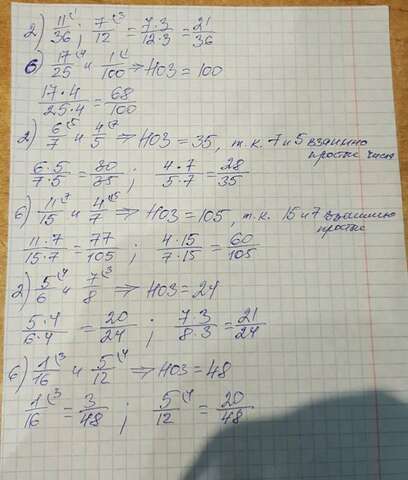 2) 11/36 ; 7/12 = 7·3/12·3 = 21/36
б) 17/25 и 1/100 ⇒ НОЗ = 100
17·4/25·4 = 68/100
2) 6/7 и 4/5 ⇒ НОЗ = 35, т.к. 7 и 5 взаимно
простые числа
6·5/7·5 = 30/35 ; 4·7/5·7 = 28/35
б) 11/15 и 4/7 ⇒ НОЗ = 105, т.к. 15 и 7 взаимно
простые
11·7/15·7 = 77/105 ; 4·15/7·15 = 60/105
2) 5/6 и 7/8 ⇒ НОЗ = 24
5·4/6·4 = 20/24 ; 7·3/8·3 = 21/24
б) 1/16 и 5/12 ⇒ НОЗ = 48
1/16 = 3/48 ; 5/12 = 20/48